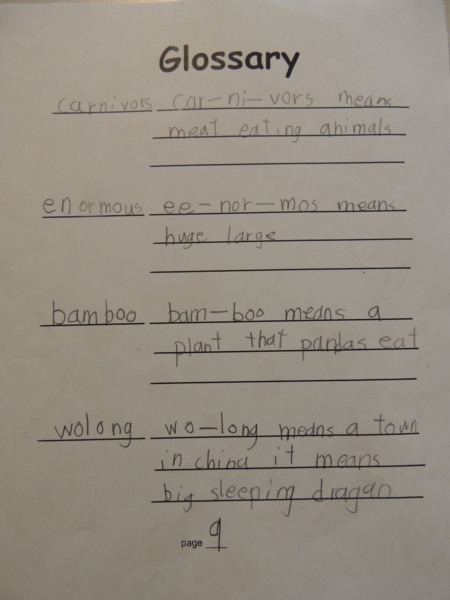 Glossary
carnivors car-ni-vors means
meat eating animals
enormous ee-nor-mos means
huge large
bamboo bam-boo means a
plant that pandas eat
wolong wo-long means a town
in china it means
big sleeping dragan
page 9